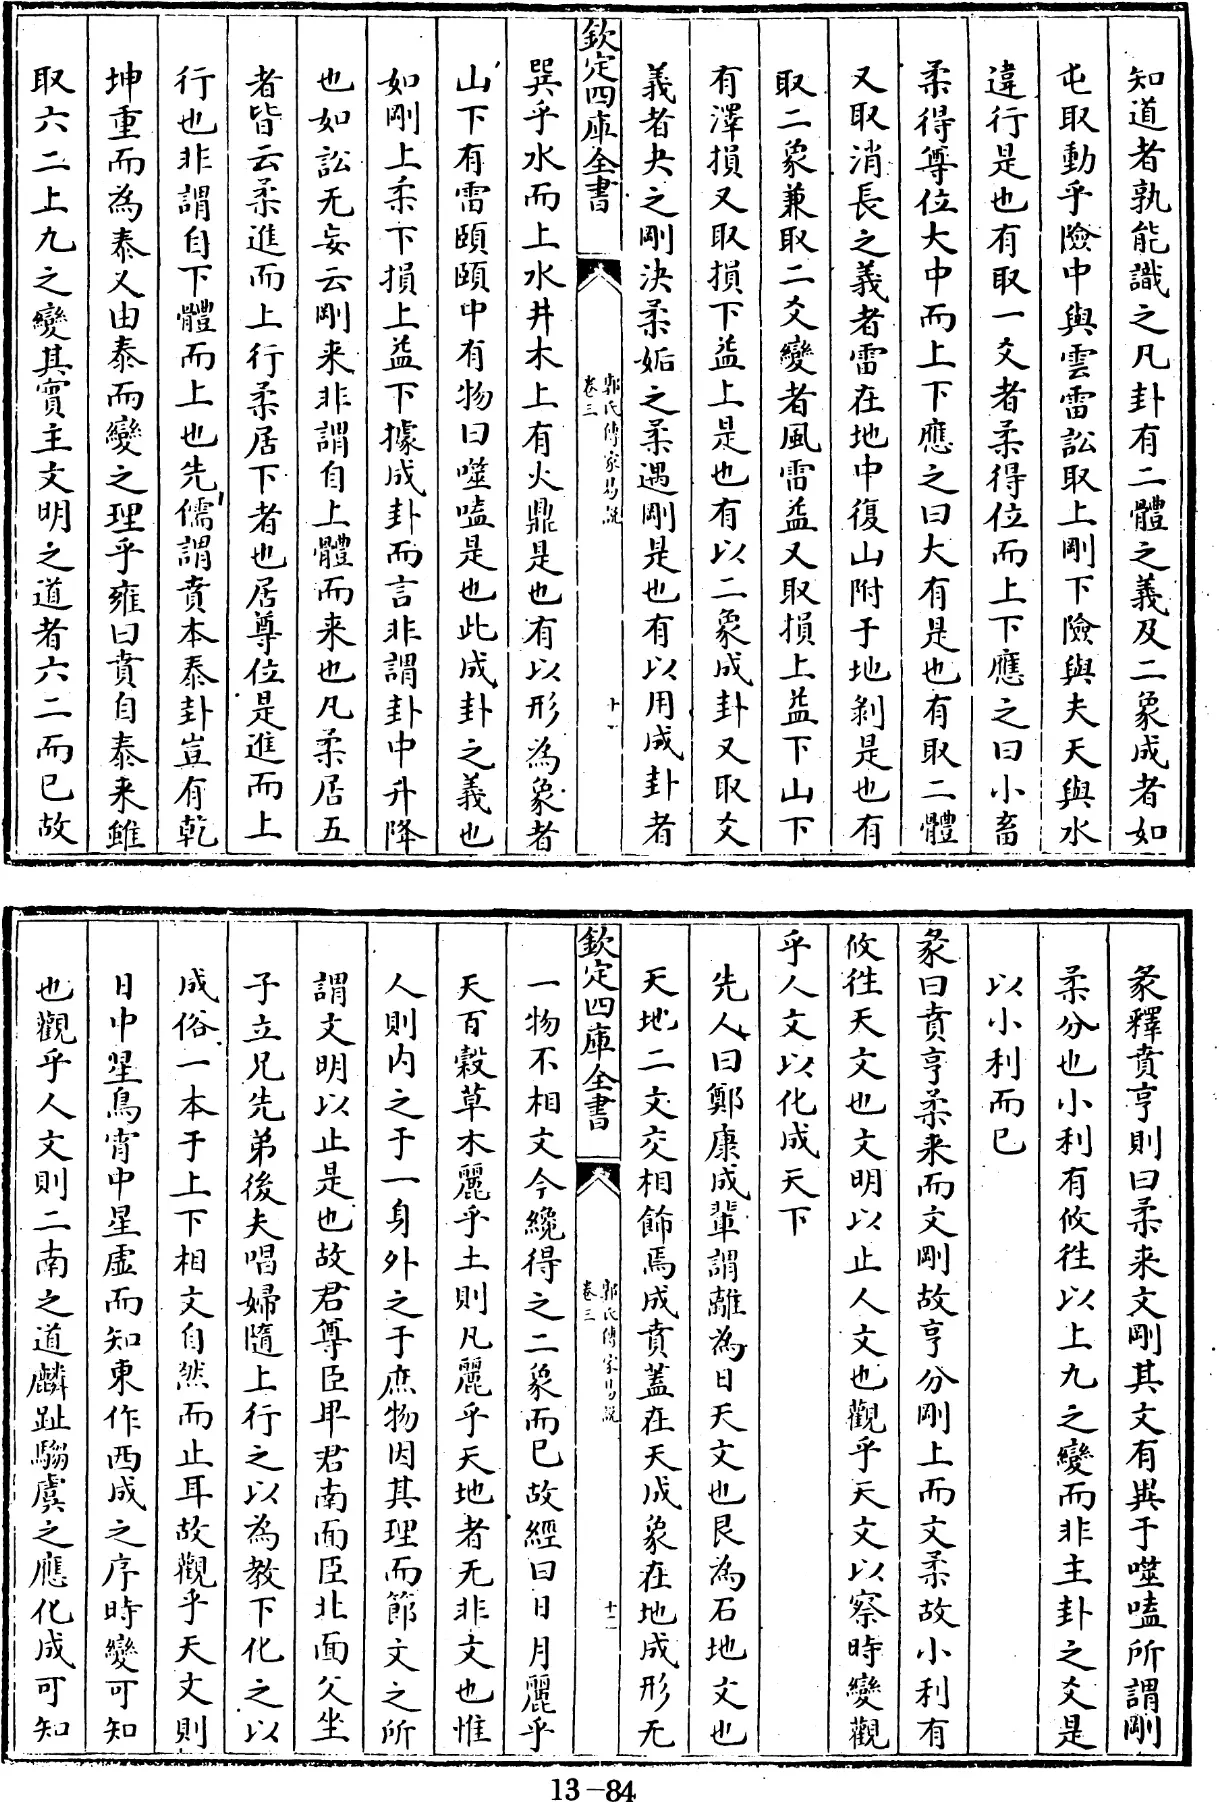 知道者孰能識之凡卦有二體之義及二象成者如
屯取動乎險中與雲雷訟取上剛下險與夫天與水
違行是也有取一爻者柔得位而上下應之曰小畜
柔得尊位大中而上下應之曰大有是也有取二體
又取消長之義者雷在地中復山附于地剝是也有
取二象兼取二爻變者風雷益又取損上益下山下
有澤損又取損下益上是也有以二象成卦又取爻
義者夬之剛決柔姤之柔遇剛是也有以用成卦者
欽定四庫全書
郭氏傳家易說
卷三
十一
巽乎水而上水井木上有火鼎是也有以形為象者
山下有雷頤頤中有物曰噬嗑是也此成卦之義也
如剛上柔下損上益下據成卦而言非謂卦中升降
也如訟无妄云剛来非謂自上體而来也凡柔居五
者皆云柔進而上行柔居下者也居尊位是進而上
行也非謂自下體而上也先儒謂賁本泰卦豈有乾
坤重而為泰又由泰而變之理乎雍曰賁自泰来雖
取六二上九之變其實主文明之道者六二而已故
彖釋賁亨則曰柔来文剛其文有異于噬嗑所謂剛
柔分也小利有攸徃以上九之變而非主卦之爻是
以小利而已
彖曰賁亨柔来而文剛故亨分剛上而文柔故小利有
攸徃天文也文明以止人文也觀乎天文以察時變觀
乎人文以化成天下
先人曰鄭康成輩謂離為日天文也艮為石地文也
天地二文交相飾焉成賁蓋在天成象在地成形无
欽定四庫全書
郭氏傳家易說
卷三
十二
一物不相文今纔得之二象而已故經曰日月麗乎
天百穀草木麗乎土則凡麗乎天地者无非文也惟
人則内之于一身外之于庶物因其理而節文之所
謂文明以止是也故君尊臣卑君南面臣北面父坐
子立兄先弟後夫唱婦隨上行之以為教下化之以
成俗一本于上下相文自然而止耳故觀乎天文則
日中星鳥宵中星虛而知東作西成之序時變可知
也觀乎人文則二南之道麟趾騶虞之應化成可知
13-84